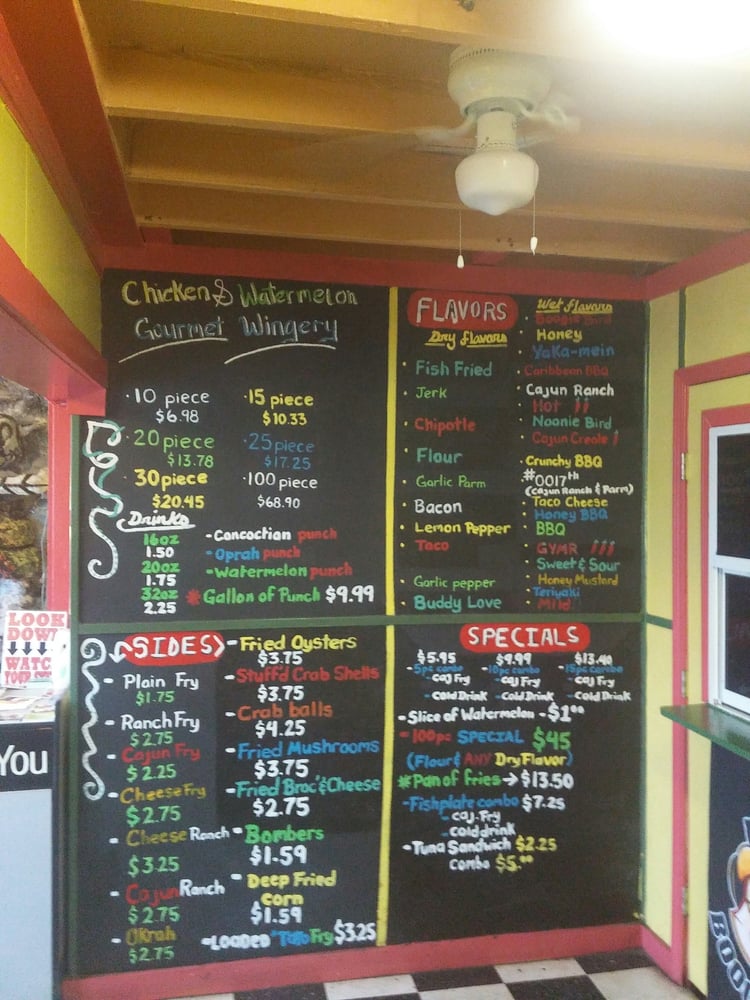 Chicken & Watermelon
Gourmet Wingery
· 10 piece
$6.98
· 15 piece
$10.33
· 20 piece
$13.78
· 25 piece
$17.25
· 30 piece
$20.45
· 100 piece
$68.90
Drinks
16oz
1.50
20oz
1.75
32oz
2.25
- Concoction punch
- Oprah punch
- Watermelon punch
* Gallon of Punch $9.99
FLAVORS
Dry flavors
· Fish Fried
· Jerk
· Chipotle
· Flour
· Garlic Parm
· Bacon
· Lemon Pepper
· Taco
· Garlic pepper
· Buddy Love
Wet flavors
· Boogie Bird
· Honey
· YaKa-mein
· Caribbean BBQ
· Cajun Ranch
Hot
· Noonie Bird
· Cajun Creole
· Crunchy BBQ
· #0017th
(Cajun Ranch & Parm)
· Taco Cheese
· Honey BBQ
· BBQ
· GYMR
· Sweet & Sour
· Honey Mustard
· Teriyaki
· Mild
SIDES
- Plain Fry
$1.75
- Ranch Fry
$2.75
- Cajun Fry
$2.25
- Cheese Fry
$2.75
- Cheese Ranch
$3.25
- Cajun Ranch
$2.75
- Okrah
$2.75
- Fried Oysters
$3.75
- Stuff'd Crab Shells
$3.75
- Crab balls
$4.25
- Fried Mushrooms
$3.75
- Fried Broc' & Cheese
$2.75
- Bombers
$1.59
- Deep Fried
corn
$1.59
- LOADED "Tato Fry $3.25
SPECIALS
$5.95
- 5pc combo
- caj Fry
- cold Drink
$9.99
- 10pc combo
- caj Fry
- cold Drink
$13.40
- 15pc combo
- caj Fry
- cold Drink
- Slice of Watermelon - $1.00
- 100pc SPECIAL $45
(Flour & ANY Dry Flavor)
* Pan of fries → $13.50
- Fishplate combo $7.25
- caj. Fry
- cold drink
- Tuna Sandwich $2.25
Combo $5.00
LOOK
DOWN
WATCH
YOUR
You